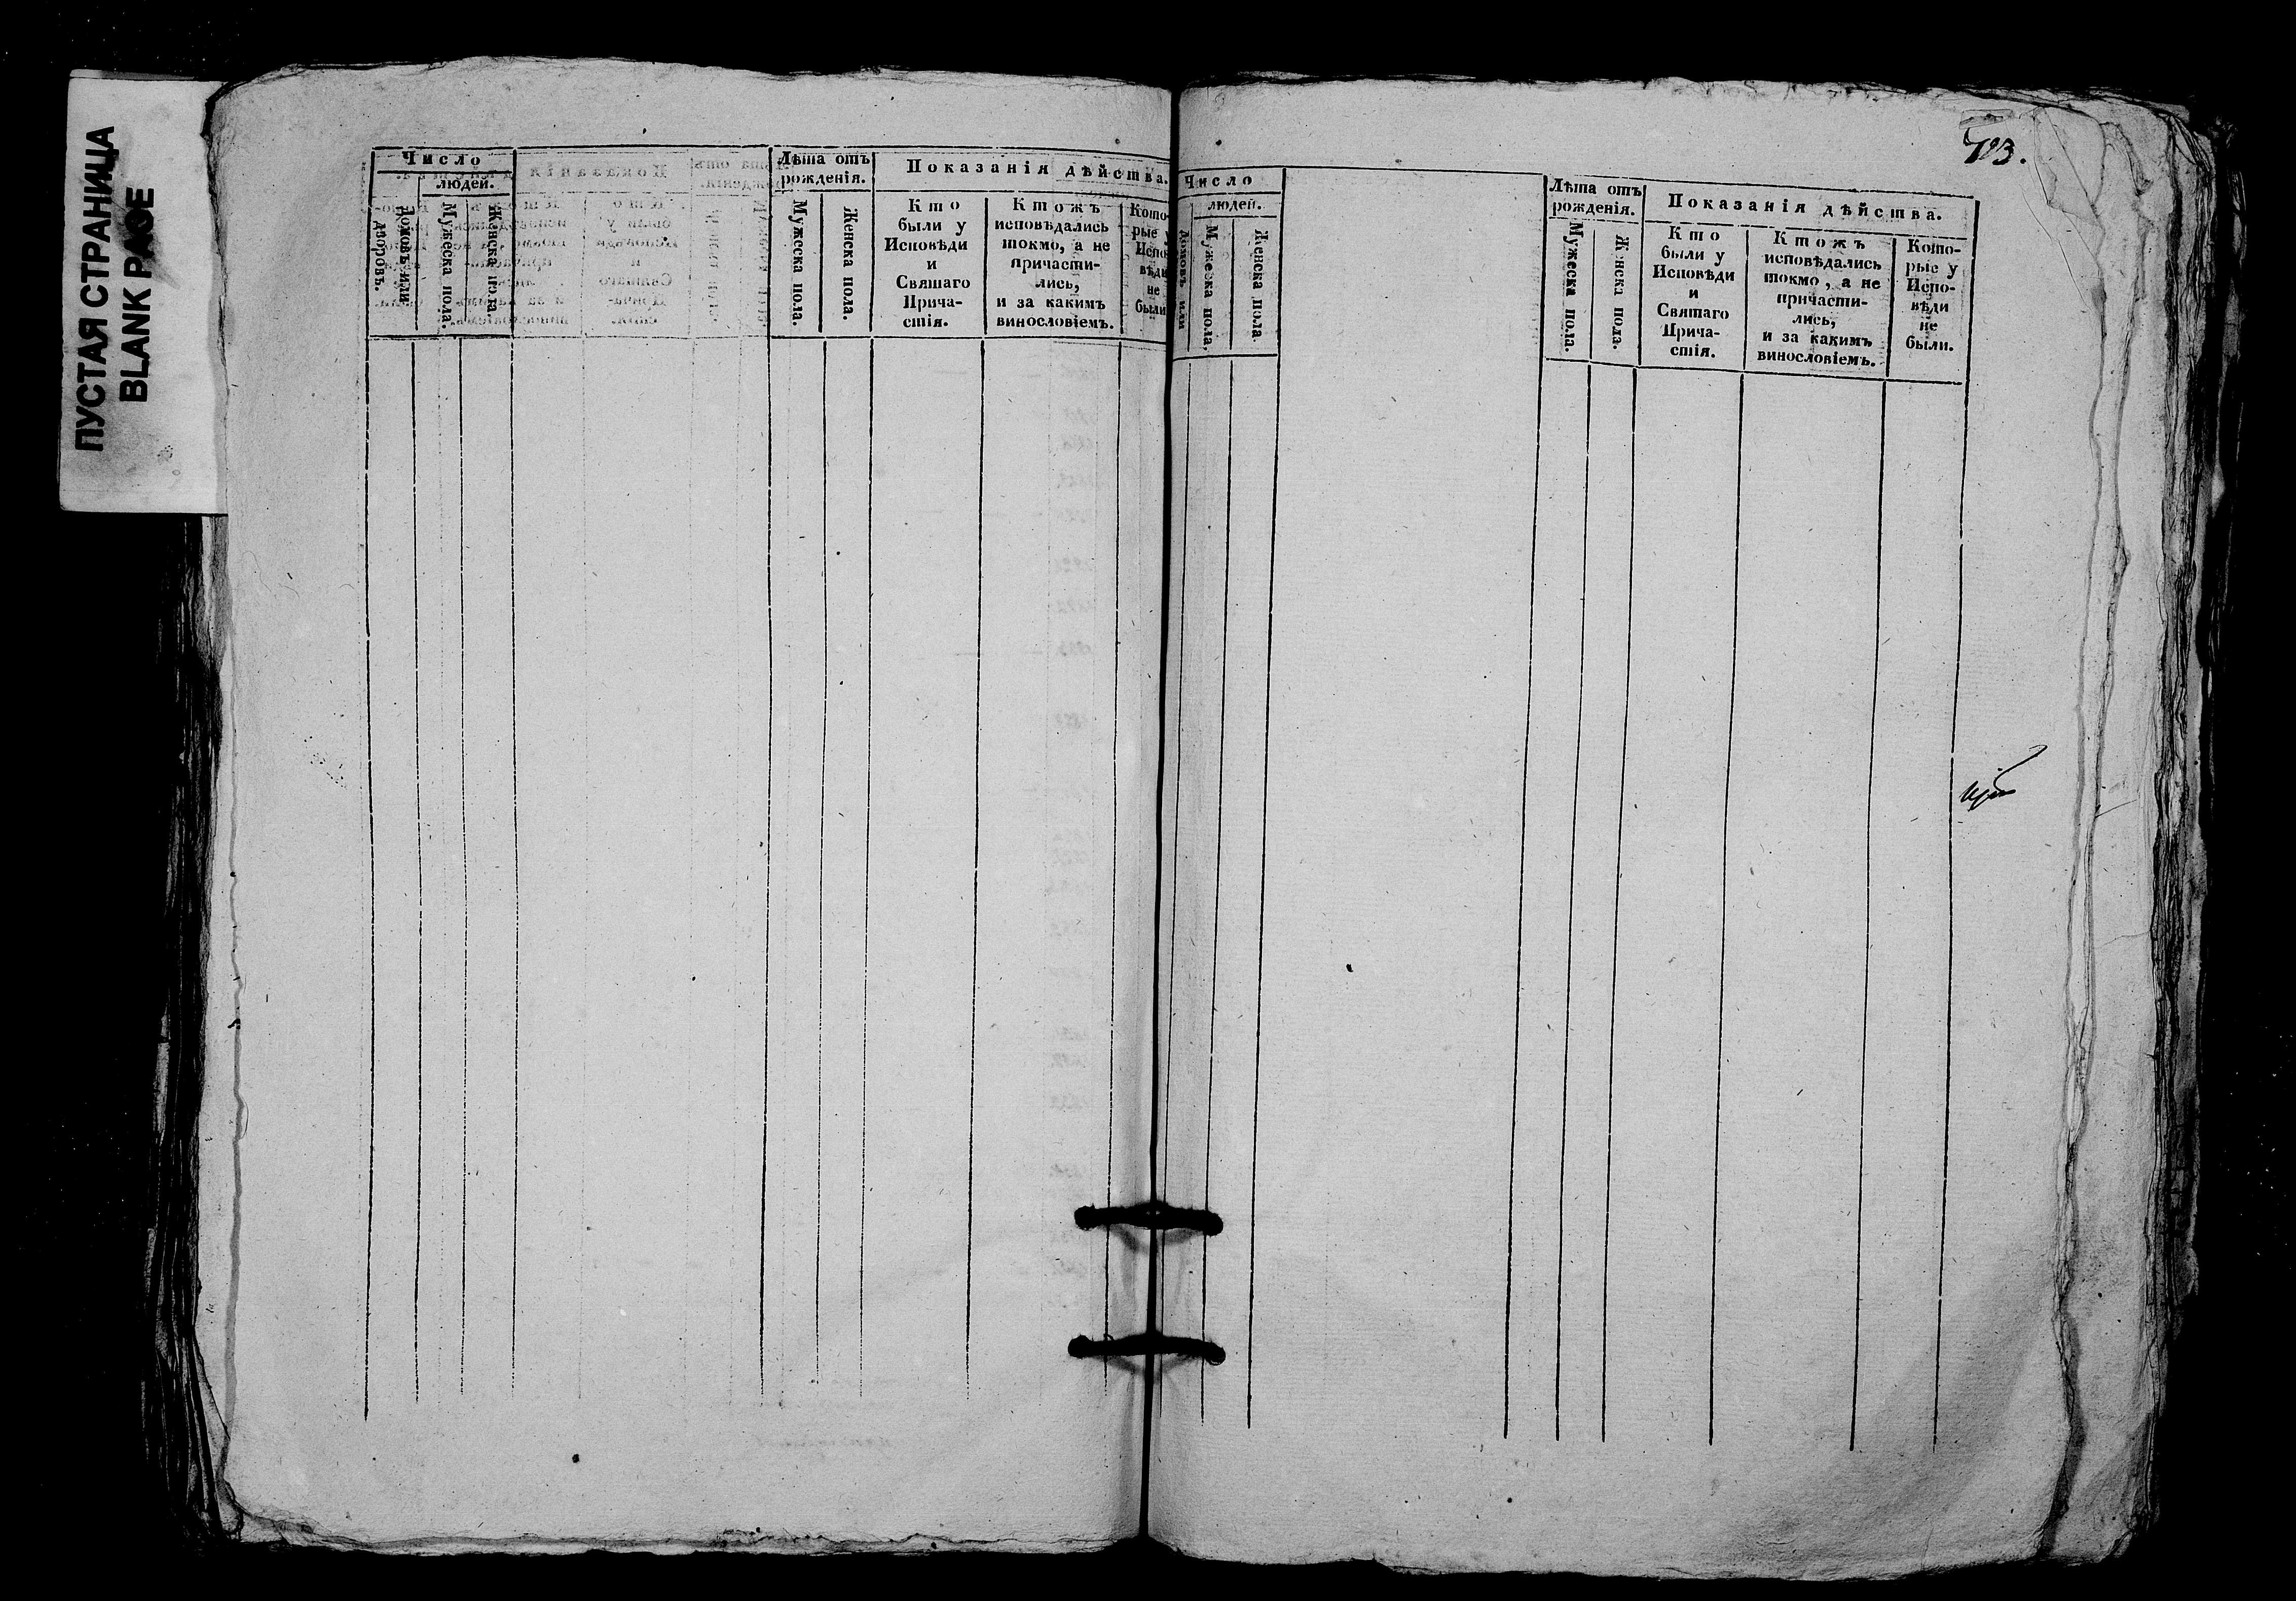 ПУСТАЯ СТРАНИЦА
BLANK PAGE
Число
людей.
Домовъ или
дворовъ.
Мужеска пола.
Женска пола.
Лѣта отъ
рожденія.
Мужеска пола.
Женска пола.
Показанія дѣйства.
Кто
были у
Исповѣди
и
Святаго
Прича-
стія.
Ктожъ
исповѣдались
токмо, а не
причасти-
лись,
и за какимъ
винословіемъ.
Кото-
рые у
Испо-
вѣди
не
были
Число
людей.
домовъ или
Мужеска пола.
Женска пола
Лѣта отъ
рожденія.
Мужеска пола.
Женска пола.
Показанія дѣйства.
Кто
были у
Исповѣди
и
Святаго
Прича-
стія.
Ктожъ
исповѣдались
токмо, а не
причасти-
лись,
и за какимъ
винословіемъ.
Кото-
рые у
Испо-
вѣди
не
были.